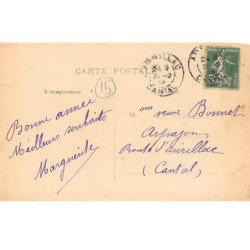 CARTE POSTALE
15
Correspondance
AURILLAC
CANTAL
Bonne année
Meilleurs souhaits
Marguerite
M me veuve Bonnet
Arpajon
Route d'Aurillac
(Cantal)